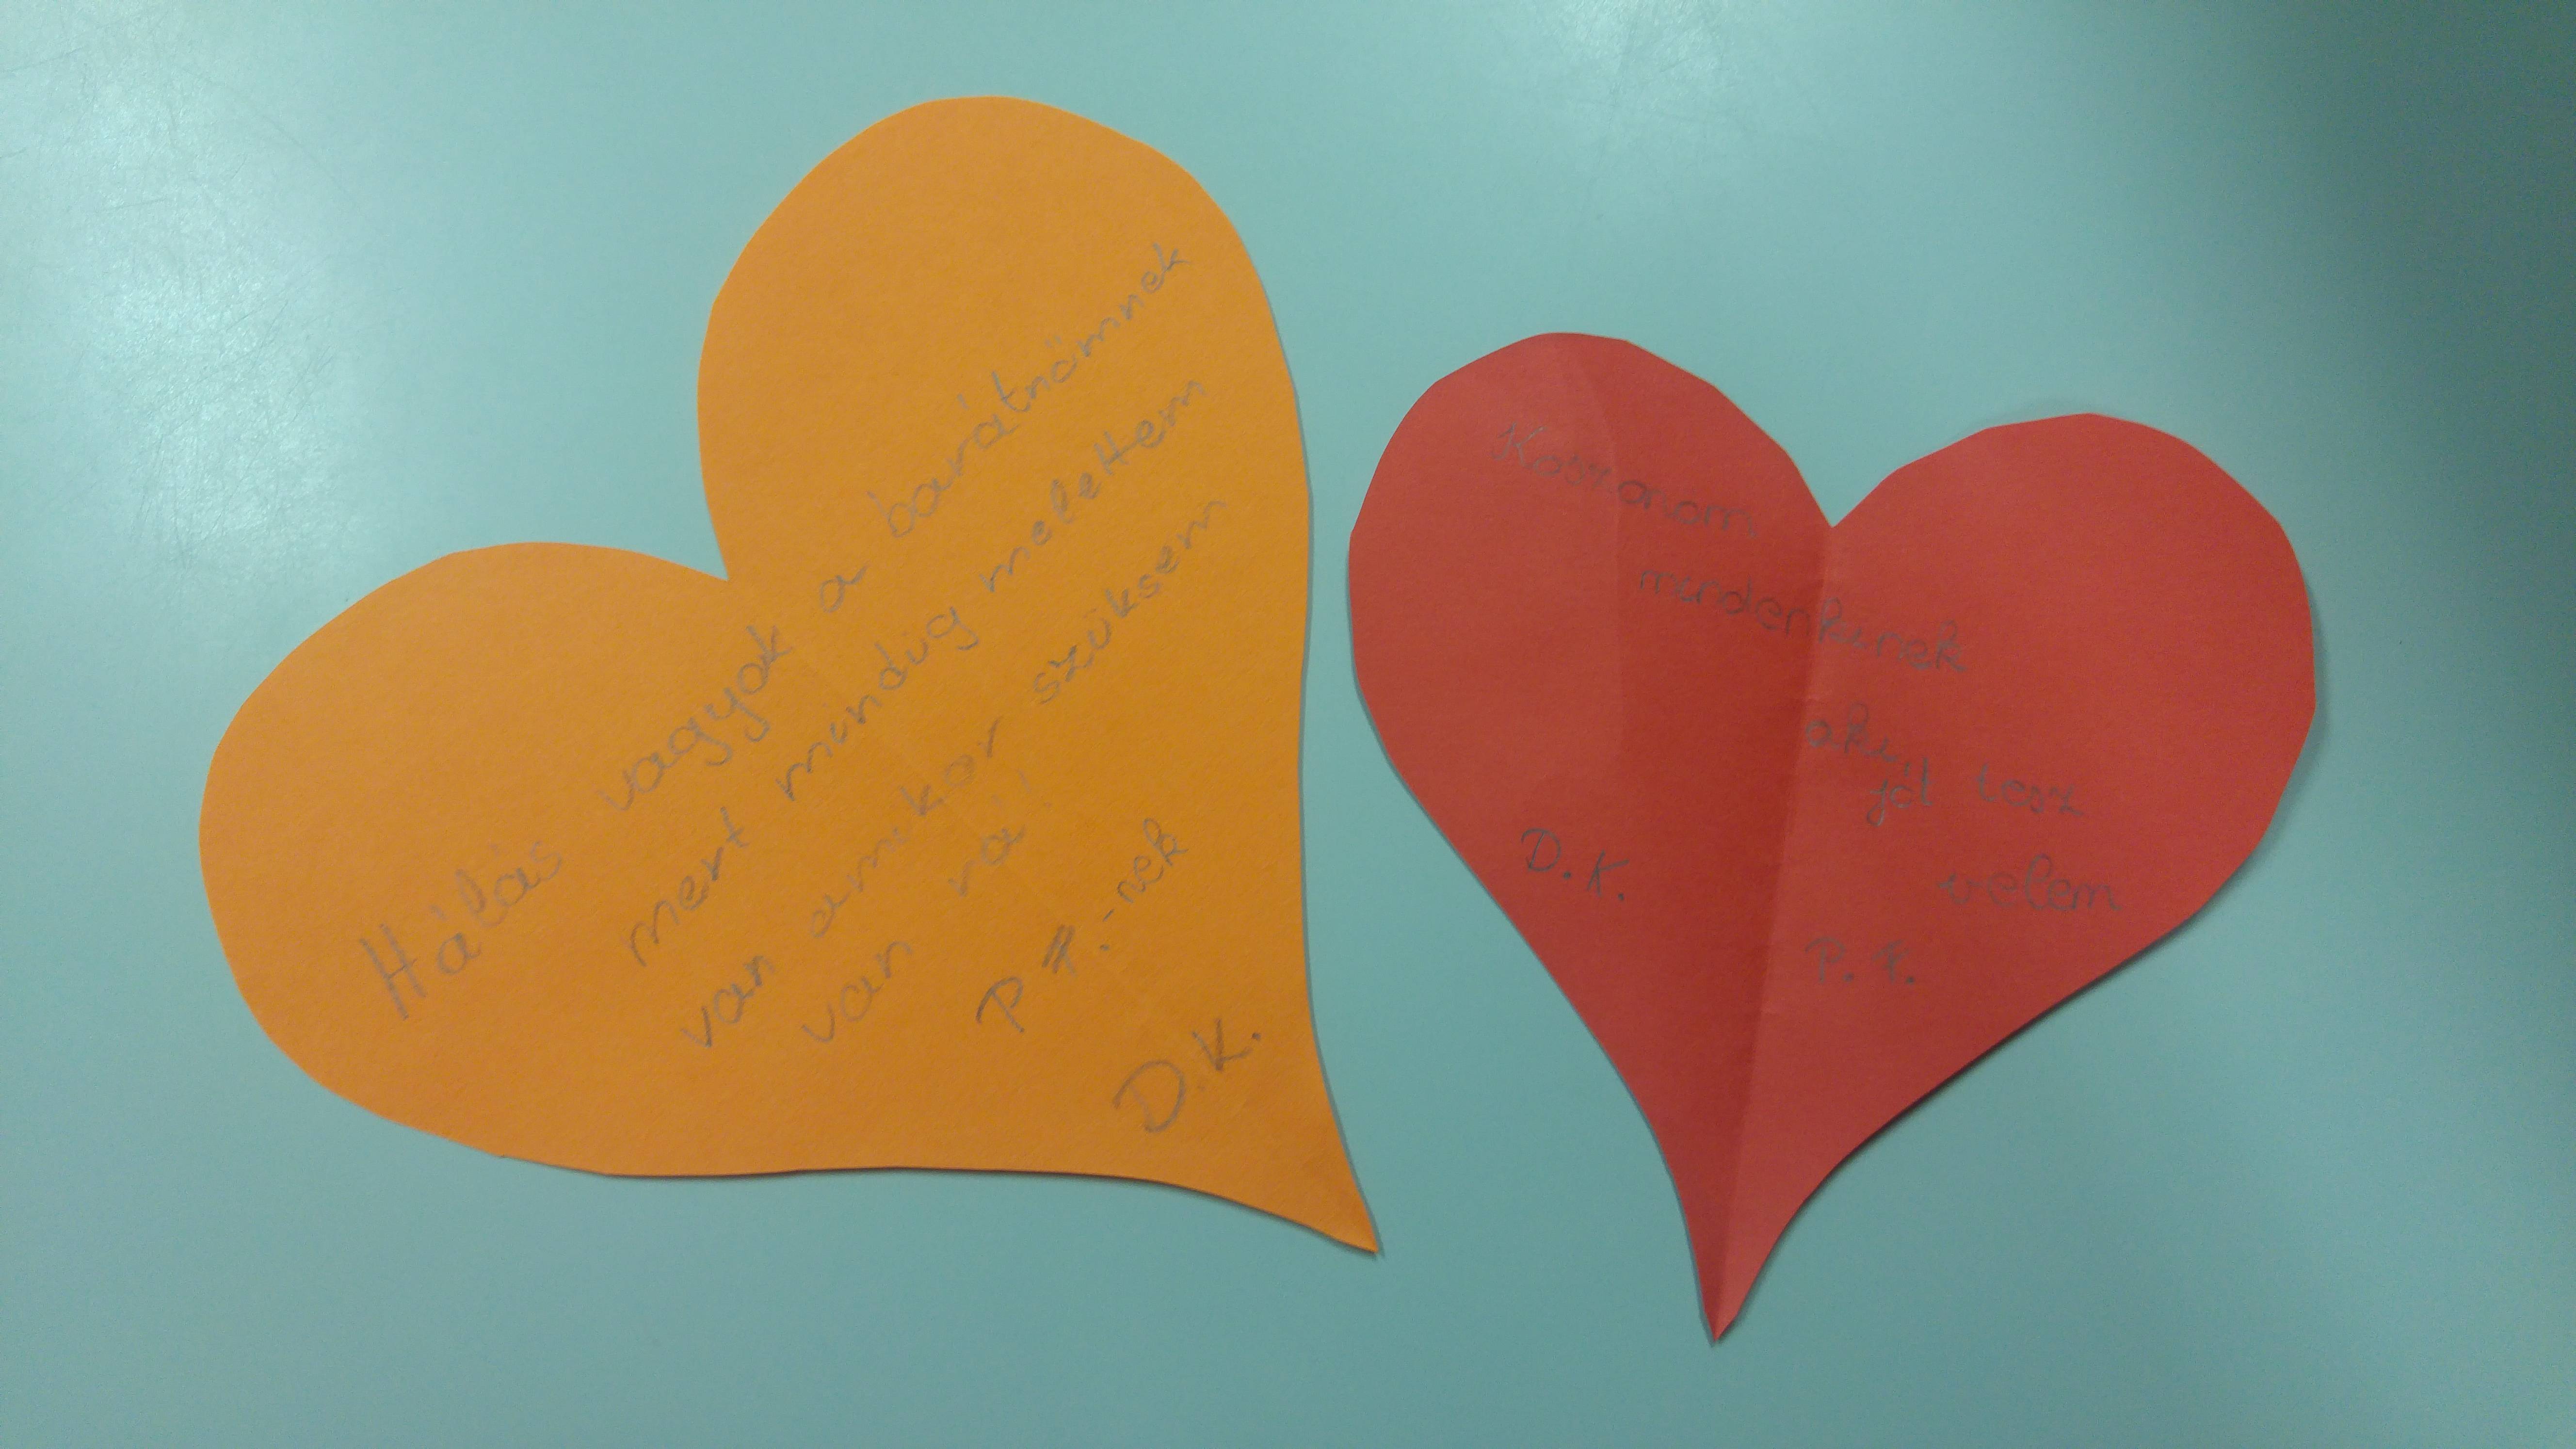 Hálás vagyok a barátnőmnek
mert mindig melettem
van amikor szüksem
van rá!
P F.-nek
D.K.
Köszönöm
mindenkinek
aki
jól tesz
velem
D.K.
P. F.